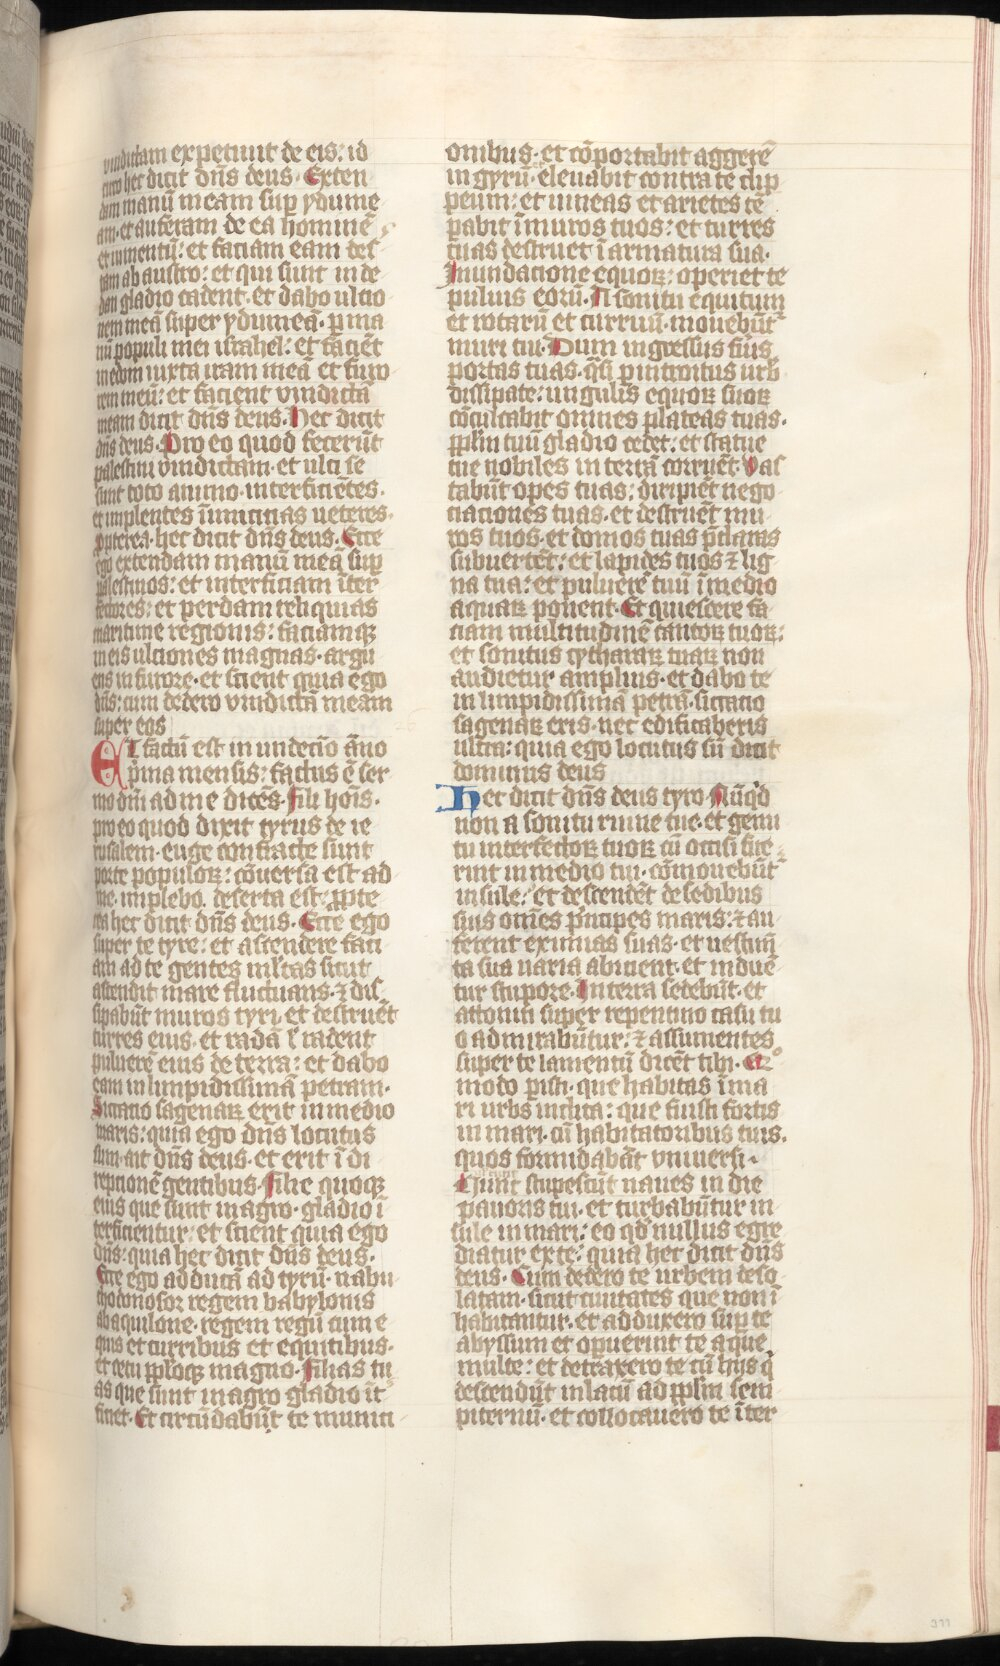 vindictam expetiuit de eis: id
circo hec dicit dn̄s deus. Exten
dam manū meam sup ydume
am. et auferam de ea hominē
et iumentū: et faciam eam deser
tam ab austro: et qui sunt in de
dan gladio cadent. et dabo ultio
nem meā super ydumeā. p̱ ma
nū populi mei israhel: et faciēt
in edom iuxta iram meā et furo
rem meū: et scient vindictā
meam dicit dn̄s deus. Hec dicit
dn̄s deus. Pro eo quod fecerūt
palestini vindictam. et ulti se
sunt toto animo. interficiētes.
et implentes īimicitias ueteres.
ꝓpterea. hec dicit dn̄s deus. Ecce
ego extendam manū meā sup
palestinos: et interficiam īter
fectores: et perdam reliquias
maritime regionis: faciamqꝫ
in eis ulciones magnas. argu
ens in furore. et scient quia ego
dn̄s: cum dedero vindictā meam
super eos
ET factū est in undecīo āno
p̱ma mensis: factus ē ser
mo dn̄i ad me dicēs. Fili hoīs.
pro eo quod dixit tyrus de ie
rusalem. euge confracte sunt
porte populoꝝ: cōuersa est ad
me. implebo. deserta est: ꝓpte
rea hec dicit dn̄s deus. Ecce ego
super te tyre: et ascendere faci
am ad te gentes mltas sicut
ascendit mare fluctuans. ⁊ dis
sipabūt muros tyri. et destruēt
turres eius. et radā
puluerē eius de terra: et dabo
eam in limpidissimā petram.
Siccatio sagenaꝝ erit in medio
maris: quia ego dn̄s locutus
sum. ait dn̄s deus. et erit ī di
reptionē gentibus. Filie quoqꝫ
eius que sunt in agro. gladio ī
terficientur: et scient quia ego
dn̄s: quia hec dicit dn̄s deus.
Ecce ego adducā ad tyrū. nabu
chodonosor regem babylonis
ab aquilone. regem regū cum e
quis et curribus et equitibus.
et cetu ppl̄oqꝫ magno. Filias tu
as que sunt in agro gladio īt
ficiet. Et circūdabūt te muniti
onibus. et cōportabit aggerē
in gyrū. eleuabit contra te clip
peum: et uineas et arietes tē
pabit ī muros tuos: et turres
tuas destruet ī armatura sua.
Inundatione equoꝝ: operiet te
puluis eorū. A sonitu equitum
et rotarū et curruū. mouebūt
muri tui. Dum ingressus fūs
portas tuas. qͣsi p introitus urb
dissipate: ungulis equoꝝ suoꝝ
cōculcabit omnes plateas tuas.
pplm tuū gladio cedet: et statue
tue nobiles in terrā corruēt. Vas
tabūt opes tuas: diripiēt nego
ciaciones tuas. et destruēt mu
ros tuos. et domos tuas p̄claras
subuertēt: et lapides tuos ⁊ lig
na tua: et puluerē tuū ī medio
aquaꝝ ponent. Et quiescere fa
ciam multitudinē cantoꝝ tuoꝝ:
et sonitus cytharaꝝ tuaꝝ non
audietur amplius. et dabo te
in limpidissimā petrā. siccatio
sagenaꝝ eris. nec edificaberis
ultra: quia ego locutus sū dicit
dominus deus
Hec dicit dn̄s deus tyro Nūqͥd
non a sonitu ruine tue. et gemi
tu interfectoꝝ tuoꝝ cū occisi fue
rint in medio tui. cōmouebūt
insule: et descendēt de sedibus
suis om̄es p̄ncipes maris: ⁊ au
ferent exuuias suas. et uestim
ta sua uaria abicient. et induē
tur stupore. In terra sedebūt. et
attoniti super repentino casu tu
o admirabūtur: ⁊ assumentes
super te lamentū dicēt tibi. Qͦ
modo p̱isti. que habitas ī ma
ri urbs inclita: que fuisti fortis
in mari. cū habitatoribus tuis.
quos formidabāt vniuersi.
Nunc stupescūt naues in die
pauoris tui. et turbabūtur in
sule in mari: eo qd̄ nullus egre
diatur ex te: quia hec dicit dn̄s
deus. Cum dedero te urbem deso
latam. sicut ciuitates que non ī
habitantur. et adduxero sup te
abyssum et opuerint te aque
multe: et detraxero te cū hijs q̄
descendūt in lacū ad pplm sem
piternū. et collocauero te īter
311